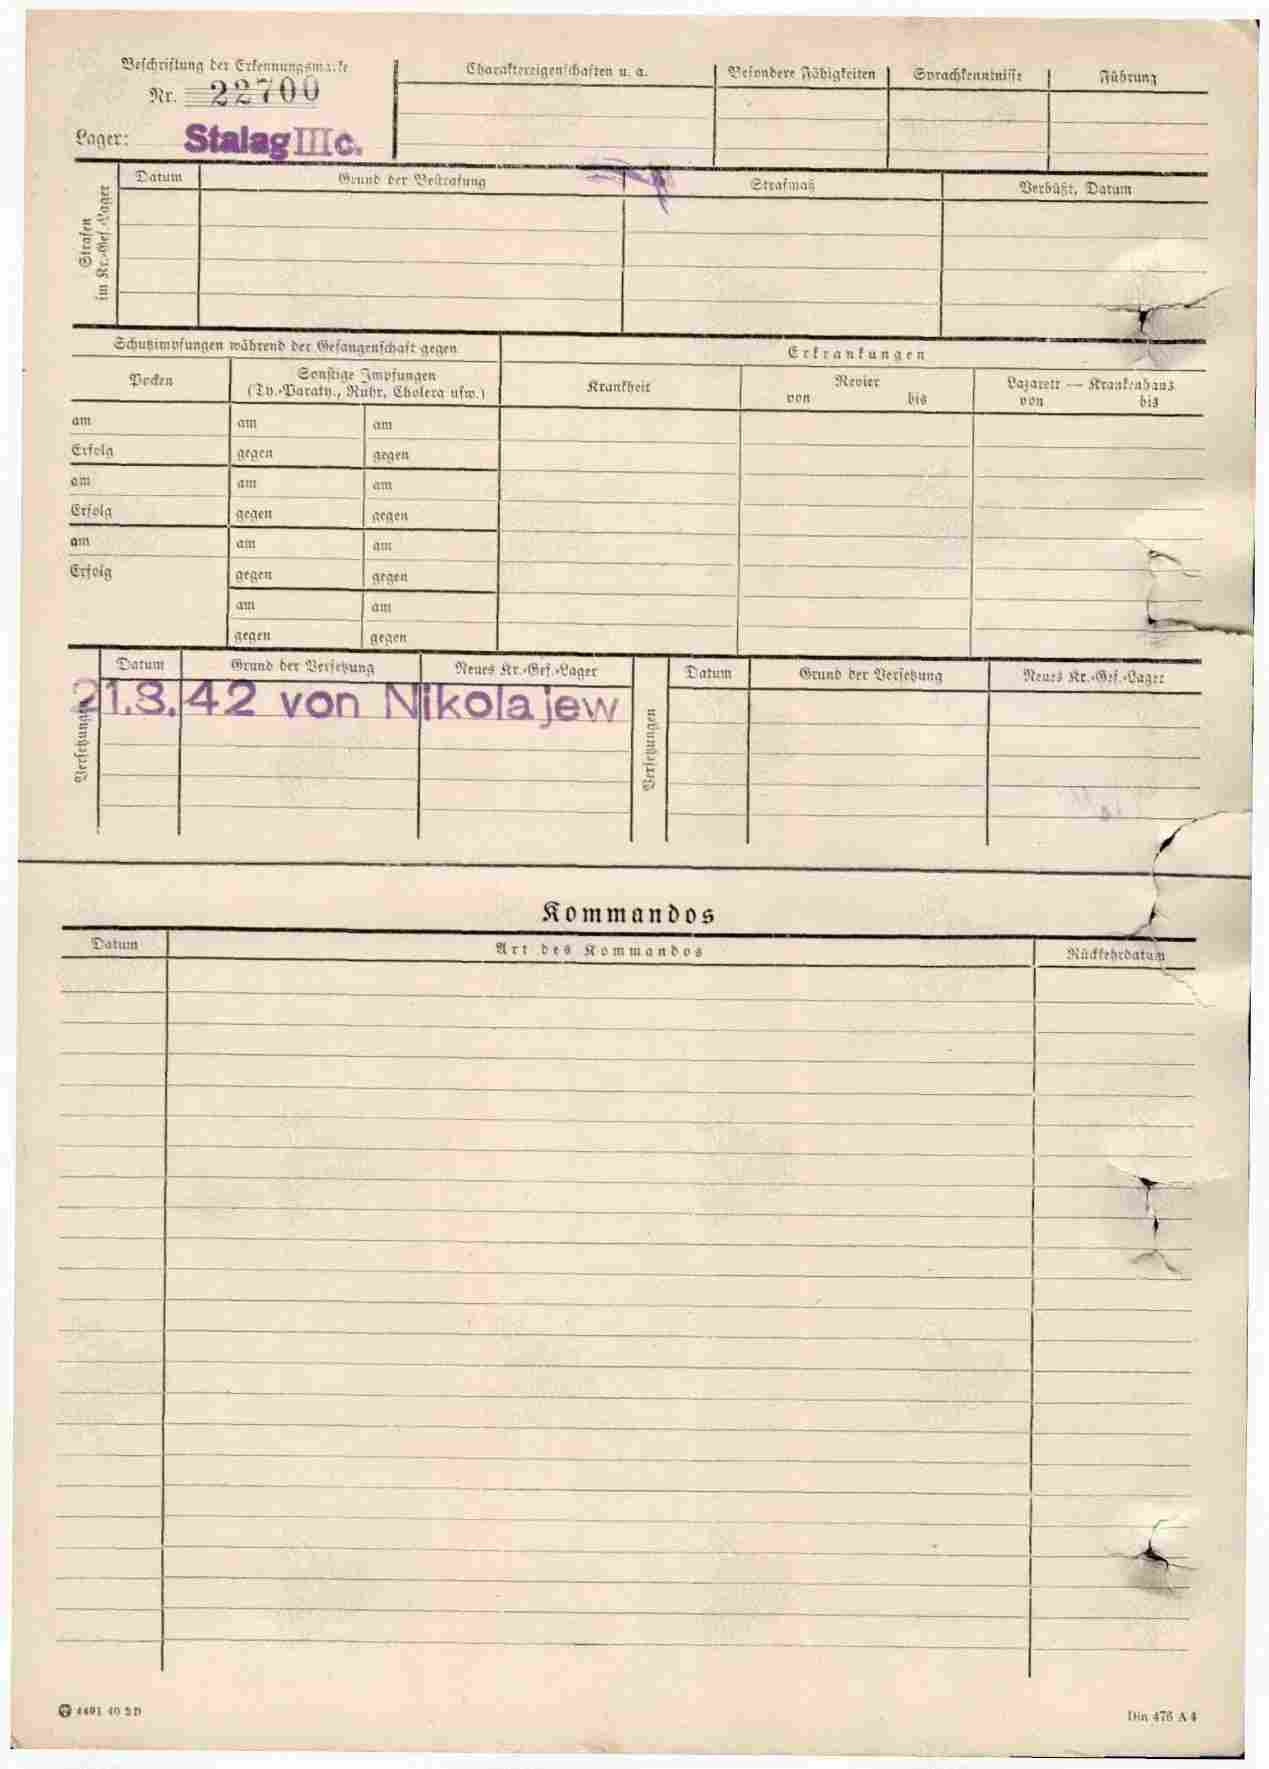 Beschriftung der Erkennungsmarke
Nr. 22700
Lager: Stalag IIIc.
Charaktereigenschaften u. a.
Besondere Fähigkeiten
Sprachkenntnisse
Führung
Strafen im Kr.-Gef.-Lager
Datum
Grund der Bestrafung
Strafmaß
Verbüßt, Datum
Schutzimpfungen während der Gefangenschaft gegen
Erkrankungen
Pocken
Sonstige Impfungen
(Ty.-Paraty., Ruhr, Cholera usw.)
Krankheit
Revier
von bis
Lazarett — Krankenhaus
von bis
am am am
Erfolg gegen gegen
am am am
Erfolg gegen gegen
am am am
Erfolg gegen gegen
am am
gegen gegen
Versetzungen
Datum Grund der Versetzung Neues Kr.-Gef.-Lager
21.8.42 von Nikolajew
Versetzungen
Datum Grund der Versetzung Neues Kr.-Gef.-Lager
Kommandos
Datum Art des Kommandos Rückkehrdatum
4491 40 2D
Din 476 A 4